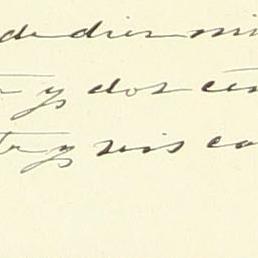 de diez mi
y dos cen
y seis ca